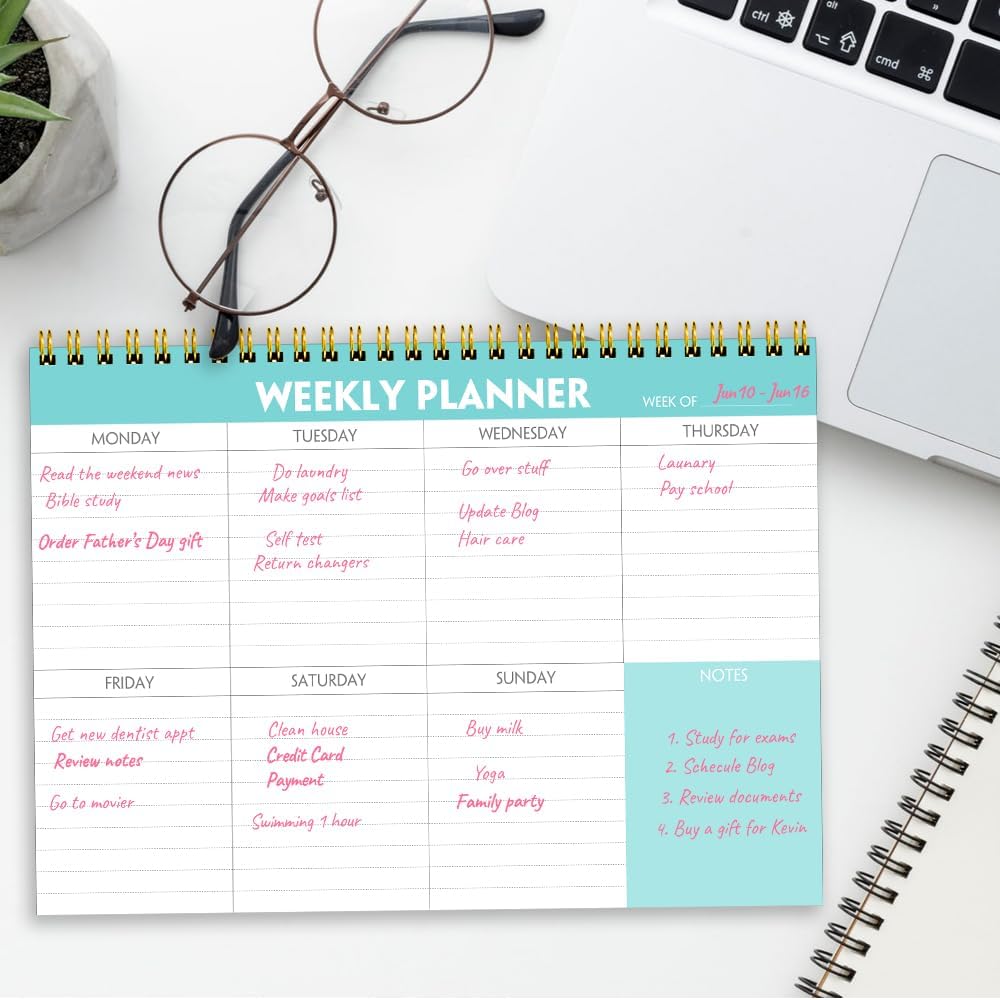 ctrl
alt
cmd
WEEKLY PLANNER
WEEK OF Jun 10 - Jun 16
MONDAY
Read the weekend news
Bible study
Order Father's Day gift
TUESDAY
Do laundry
Make goals list
Self test
Return changers
WEDNESDAY
Go over stuff
Update Blog
Hair care
THURSDAY
Launary
Pay school
FRIDAY
Get new dentist appt
Review notes
Go to movier
SATURDAY
Clean house
Credit Card
Payment
Swimming 1 hour
SUNDAY
Buy milk
Yoga
Family party
NOTES
1. Study for exams
2. Schecule Blog
3. Review documents
4. Buy a gift for Kevin